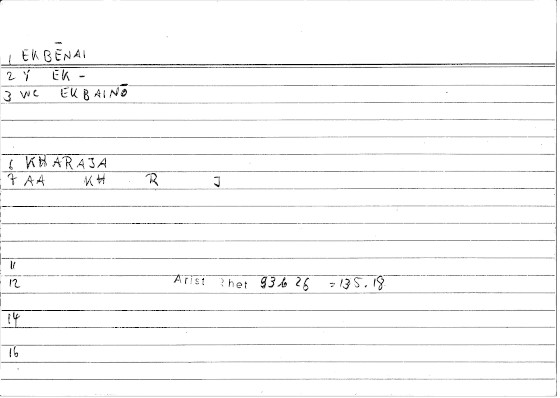 1 EKBĒNAI
2 Y EK -
3 WC EKBAINŌ
6 KHARAJA
7 AA KH R J
11
12 Arist Rhet 93b 26 = 135.18
14
16